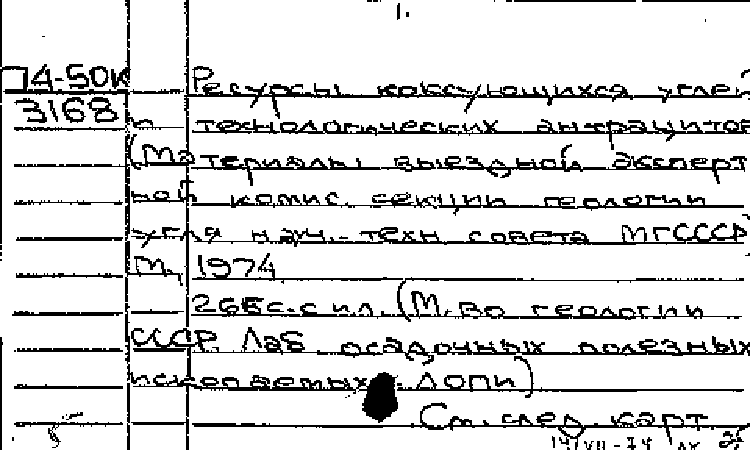 1.
П4-50к Ресурсы коксующихся углей
3168 и технологических антрацитов
(Материалы выездной эксперт
ной комис. секции геологии
угля науч.-техн совета МГСССР)
М., 1974
268с.с ил. (М.во геологии
СССР. Лаб осадочных полезных
ископаемых. ЛОПИ)
См. след. карт.
14/VII-74